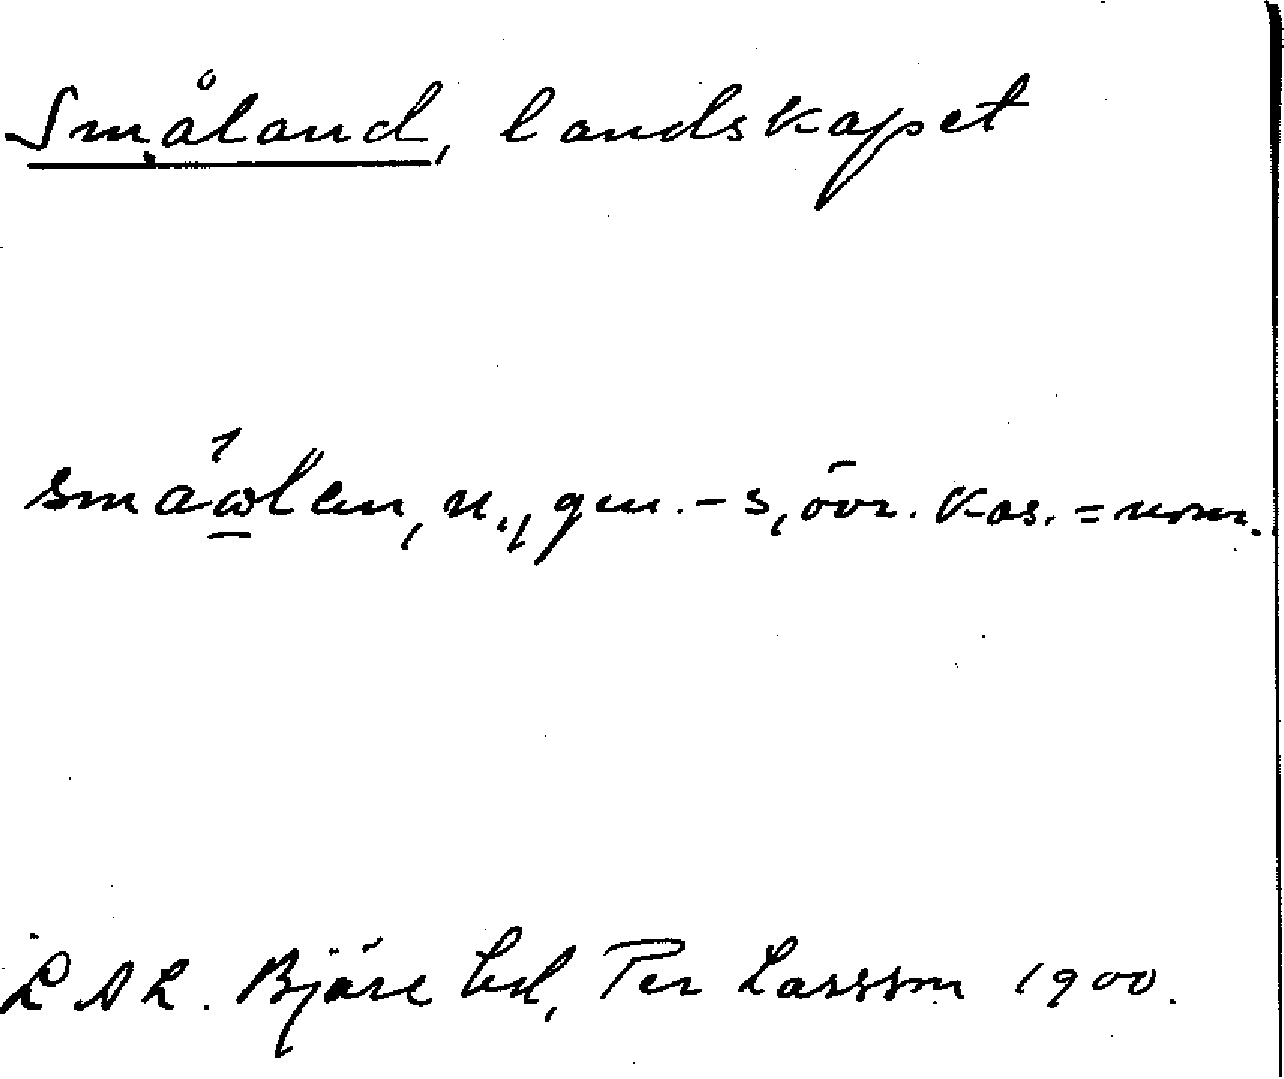 Småland, landskapet
smáω̱len, n., gen. -s, övr. kas. = nom.
LAL. Bjäre hd, Per Larsson 1900.